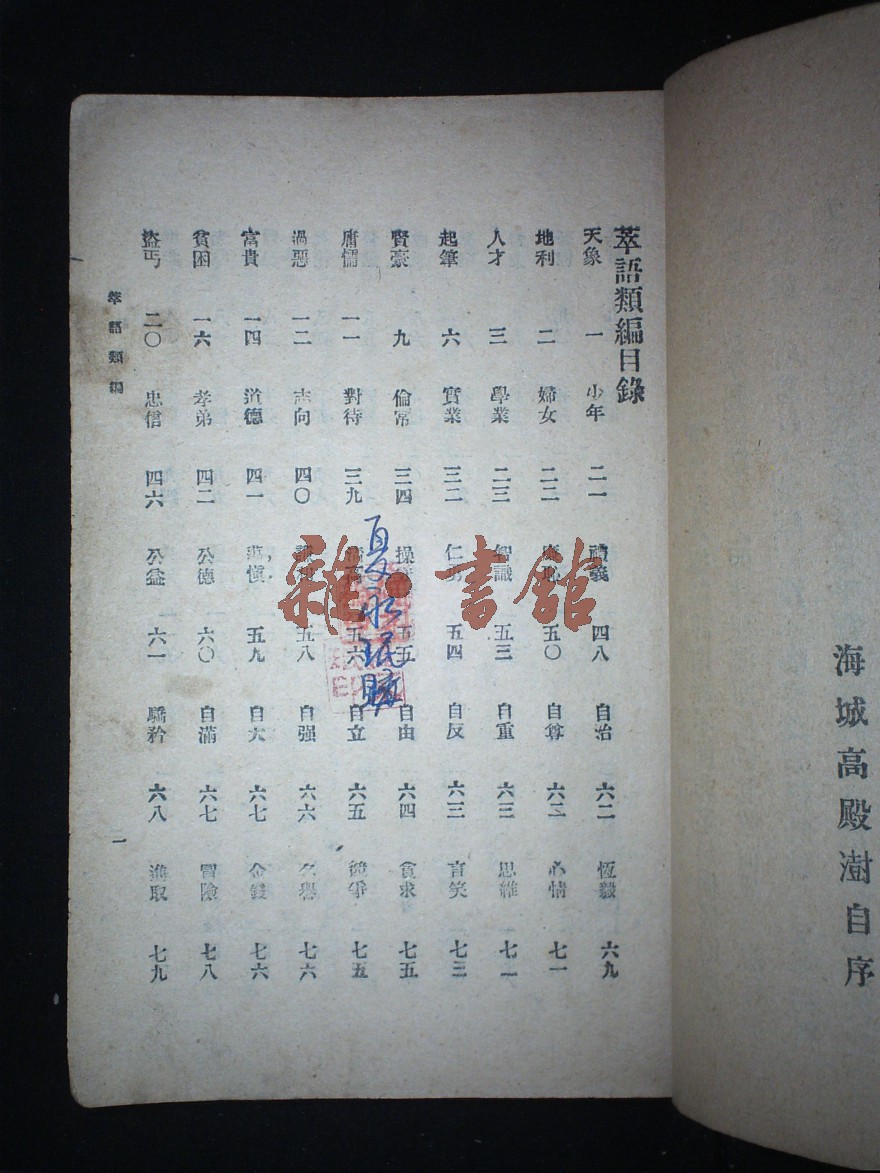 海城高殿澍自序
萃語類編目錄
天象 一 少年 二一 禮義 四八 自治 六二 恆毅 六九
地利 二 婦女 二二 五〇 自尊 六二 心情 七一
人才 三 學業 二三 智識 五三 自重 六三 思維 七一
起筆 六 實業 三二 仁勇 五四 自反 六三 言笑 七三
賢豪 九 倫常 三四 操 五五 自由 六四 貪求 七五
庸懦 一一 對待 三九 五六 自立 六五 競爭 七五
過惡 一二 志向 四〇 五八 自强 六六 名譽 七六
富貴 一四 道德 四一 謹慎 五九 自大 六七 金錢 七六
貧困 一六 孝弟 四二 公德 六〇 自滿 六七 冒險 七八
盜丐 二〇 忠信 四六 公益 六一 驕矜 六八 進取 七九
萃語類編
一
夏永
雜·書館